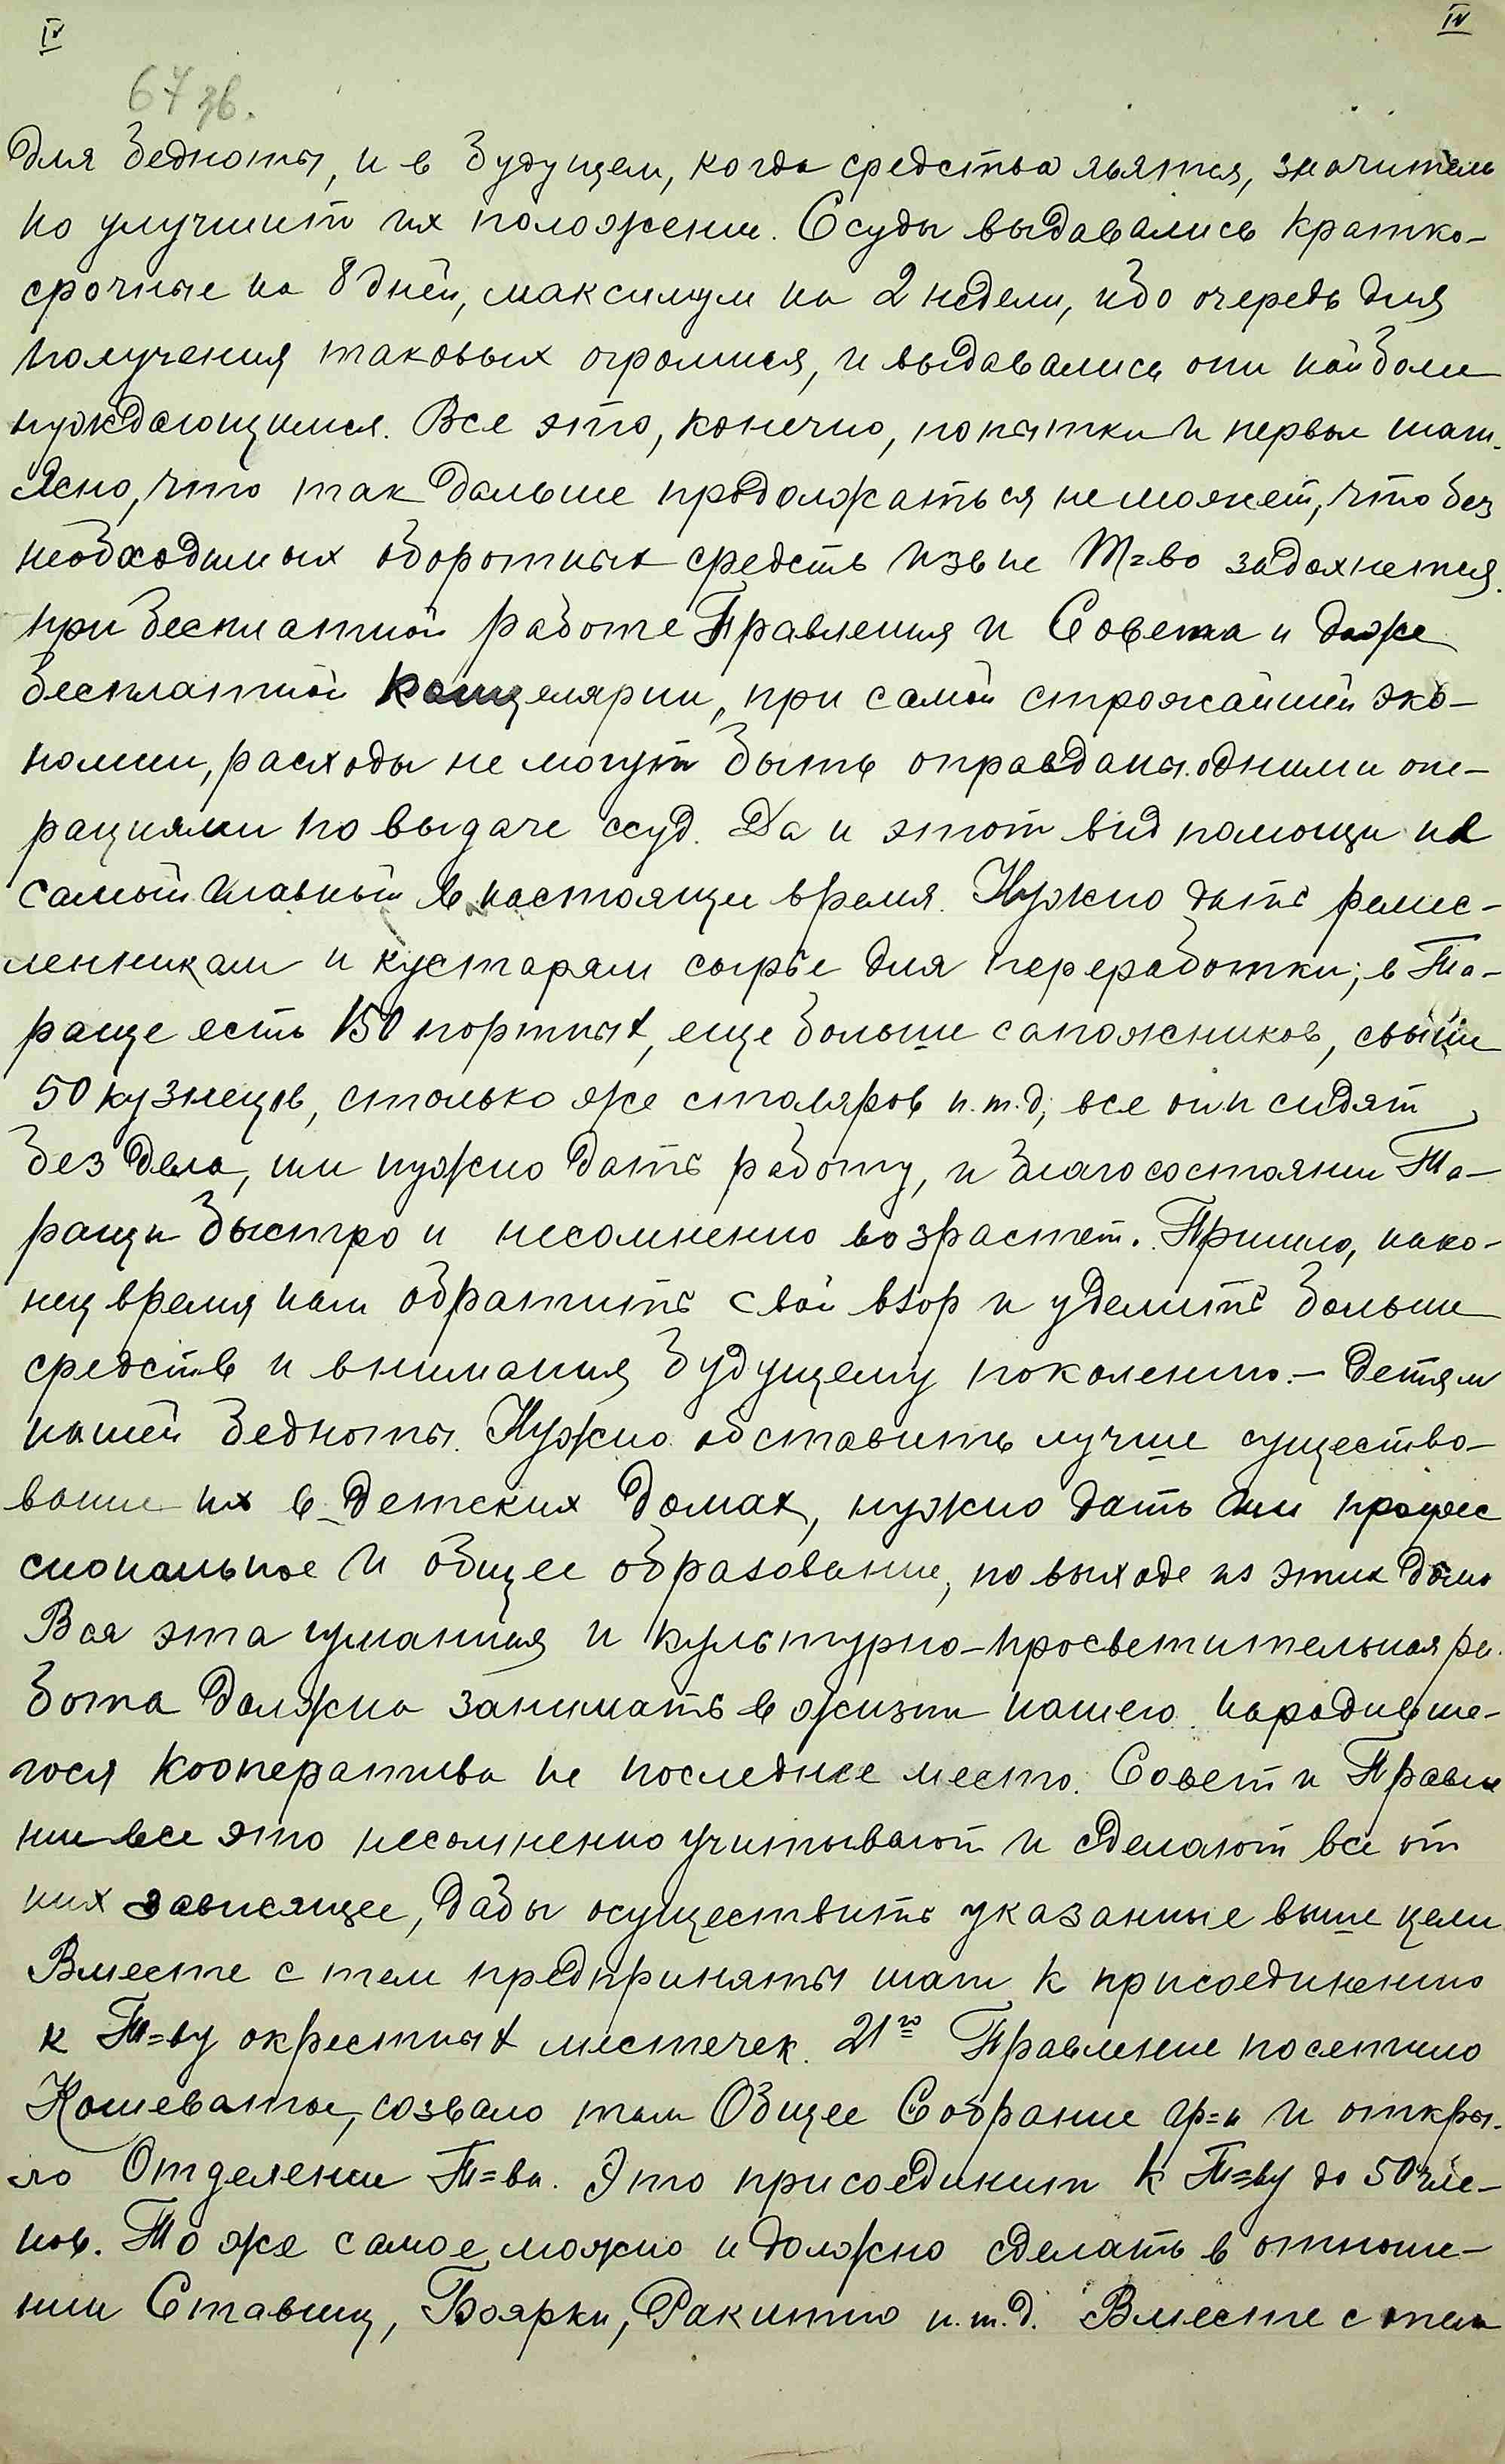 IV IV
67 зв.
для бедноты, и в будущем, когда средства явятся, значитель
но улучшит их положение. Ссуды выдавались кратко-
срочные на 8 дней, максимум на 2 недели, ибо очередь для
получения таковых огромная, и выдавались они наиболее
нуждающимся. Все это, конечно, попытки и первые шаги.
Ясно, что так дальше продолжаться не может, что без
необходимых оборотных средств извне Т=во задохнется.
при бесплатной работе Правления и Совета и даже
бесплатной канцелярии, при самой строжайшей эко-
номии, расходы не могут быть оправданы одними опе-
рациями по выдаче ссуд. Да и этот вид помощи не
самый главный в настоящее время. Нужно дать ремес-
ленникам и кустарям сырье для переработки; в Та-
раще есть 150 портных, еще больше сапожников, свыше
50 кузнецов, столько же столяров и.т.д; все они сидят
без дела, им нужно дать работу, и благосостояние Та-
ращи быстро и несомненно возрастет. Пришло, нако-
нец время нам обратить свой взор и уделить больше
средств и внимания будущему поколению. - детям
нашей бедноты. Нужно обставить лучше существо-
вание их в детских домах, нужно дать им профес
сиональное и общее образование, по выходе из этих домов
Вся эта гуманная и культурно-просветительная ра-
бота должна занимать в жизни нашего народивше-
гося кооператива не последнее место. Совет и Правле
ние все это несомненно учитывают и сделают все от
них зависящее, дабы осуществить указанные выше цели
Вместе с тем предприняты шаги к присоединению
к Т=ву окрестных местечек. 21го Правление посетило
Кошеватое, созвало там Общее Собрание гр=н и откры-
ло Отделение Т=ва. Это присоединит к Т=ву до 50 чле-
нов. То же самое можно и должно сделать в отноше-
нии Ставищ, Боярки, Ракитно и.т.д. Вместе с тем